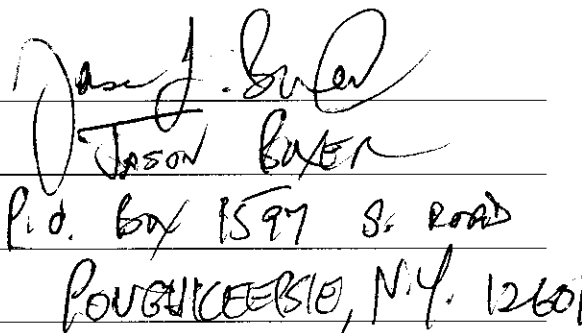 Jason J. Boxer
JASON BOXER
P.O. BOX 1597 S. ROAD
POUGHKEEPSIE, N.Y. 12601